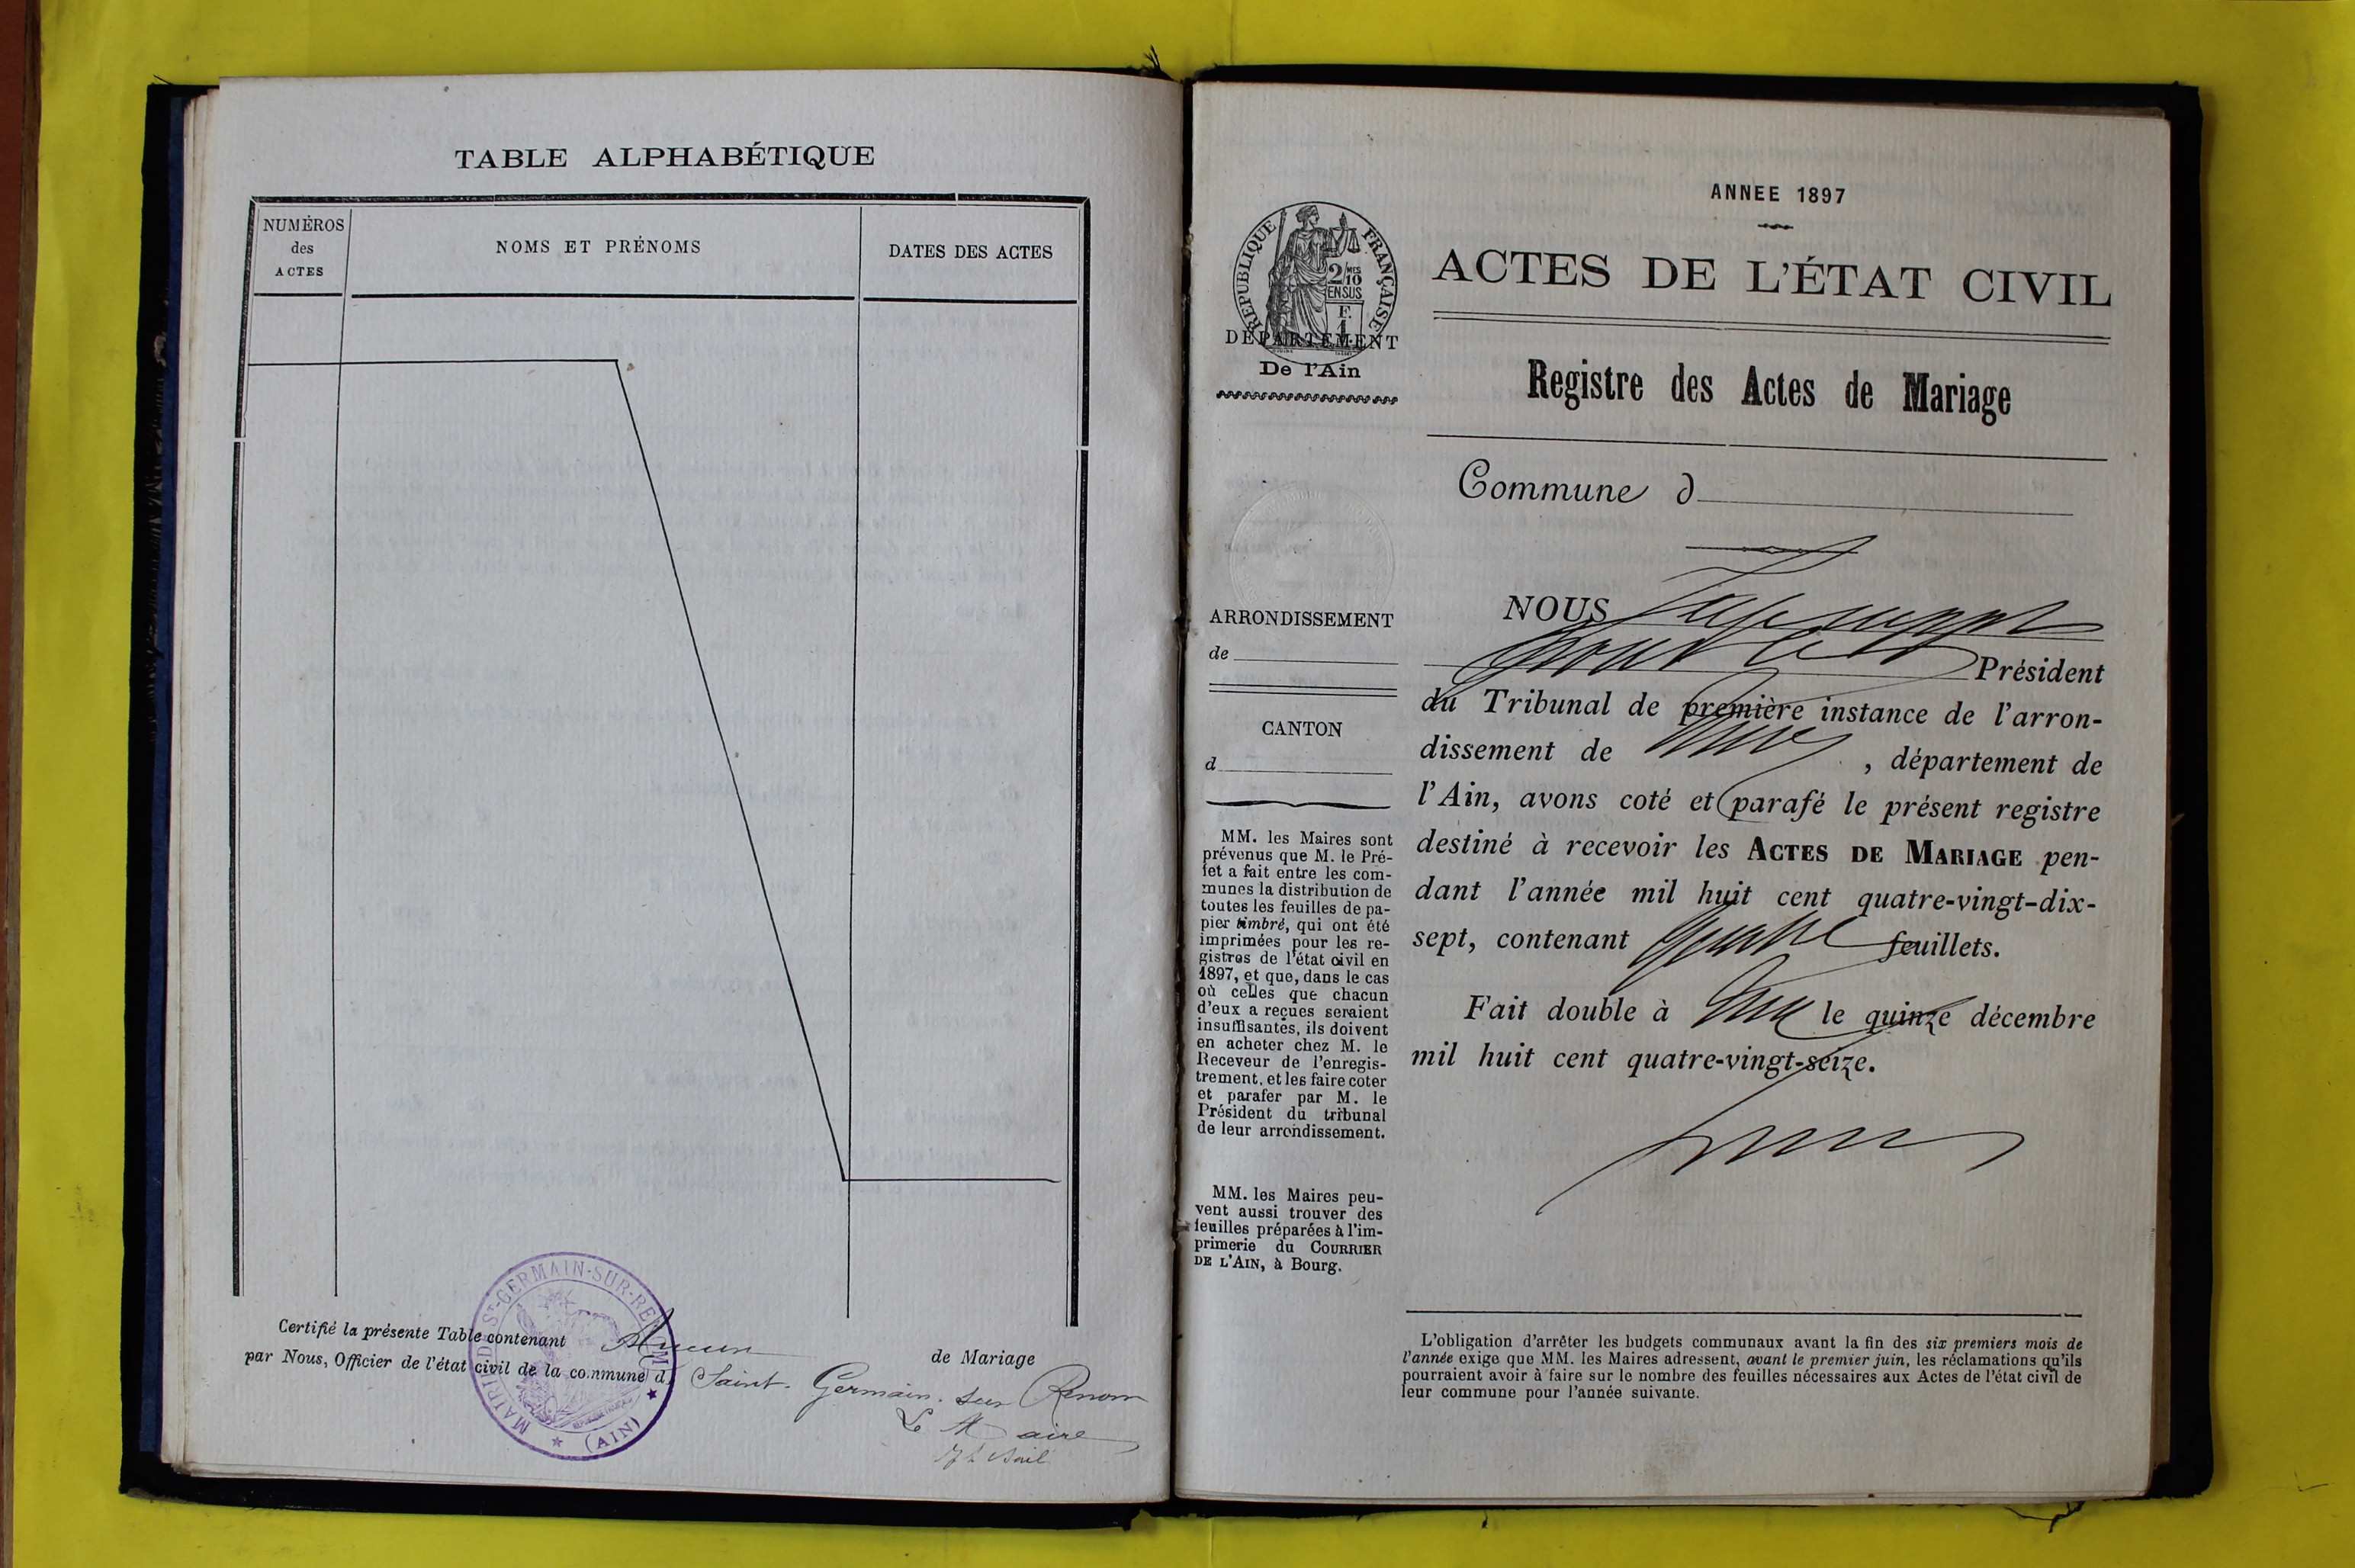 TABLE ALPHABÉTIQUE
NUMÉROS
des
ACTES
NOMS ET PRÉNOMS
DATES DES ACTES
Certifié la présente Table contenant Aucun de Mariage
par Nous, Officier de l'état civil de la commune d Saint-Germain-sur-Renom
Le Maire
MAIRIE DE ST-GERMAIN-SUR-RENOM
(AIN)
ANNEE 1897
ACTES DE L'ÉTAT CIVIL
Registre des Actes de Mariage
Commune d
REPUBLIQUE FRANÇAISE
2/10 MES
EN SUS
F.
1
DÉPARTEMENT
De l'Ain
ARRONDISSEMENT
de
CANTON
d
MM. les Maires sont
prévenus que M. le Pré-
fet a fait entre les com-
munes la distribution de
toutes les feuilles de pa-
pier timbré, qui ont été
imprimées pour les re-
gistres de l'état civil en
1897, et que, dans le cas
où celles que chacun
d'eux a reçues seraient
insuffisantes, ils doivent
en acheter chez M. le
Receveur de l'enregis-
trement, et les faire coter
et parafer par M. le
Président du tribunal
de leur arrondissement.
MM. les Maires peu-
vent aussi trouver des
feuilles préparées à l'im-
primerie du COURRIER
DE L'AIN, à Bourg.
NOUS
Président
du Tribunal de première instance de l'arron-
dissement de , département de
l'Ain, avons coté et parafé le présent registre
destiné à recevoir les ACTES DE MARIAGE pen-
dant l'année mil huit cent quatre-vingt-dix-
sept, contenant quatre feuillets.
Fait double à le quinze décembre
mil huit cent quatre-vingt-seize.
L'obligation d'arrêter les budgets communaux avant la fin des six premiers mois de
l'année exige que MM. les Maires adressent, avant le premier juin, les réclamations qu'ils
pourraient avoir à faire sur le nombre des feuilles nécessaires aux Actes de l'état civil de
leur commune pour l'année suivante.